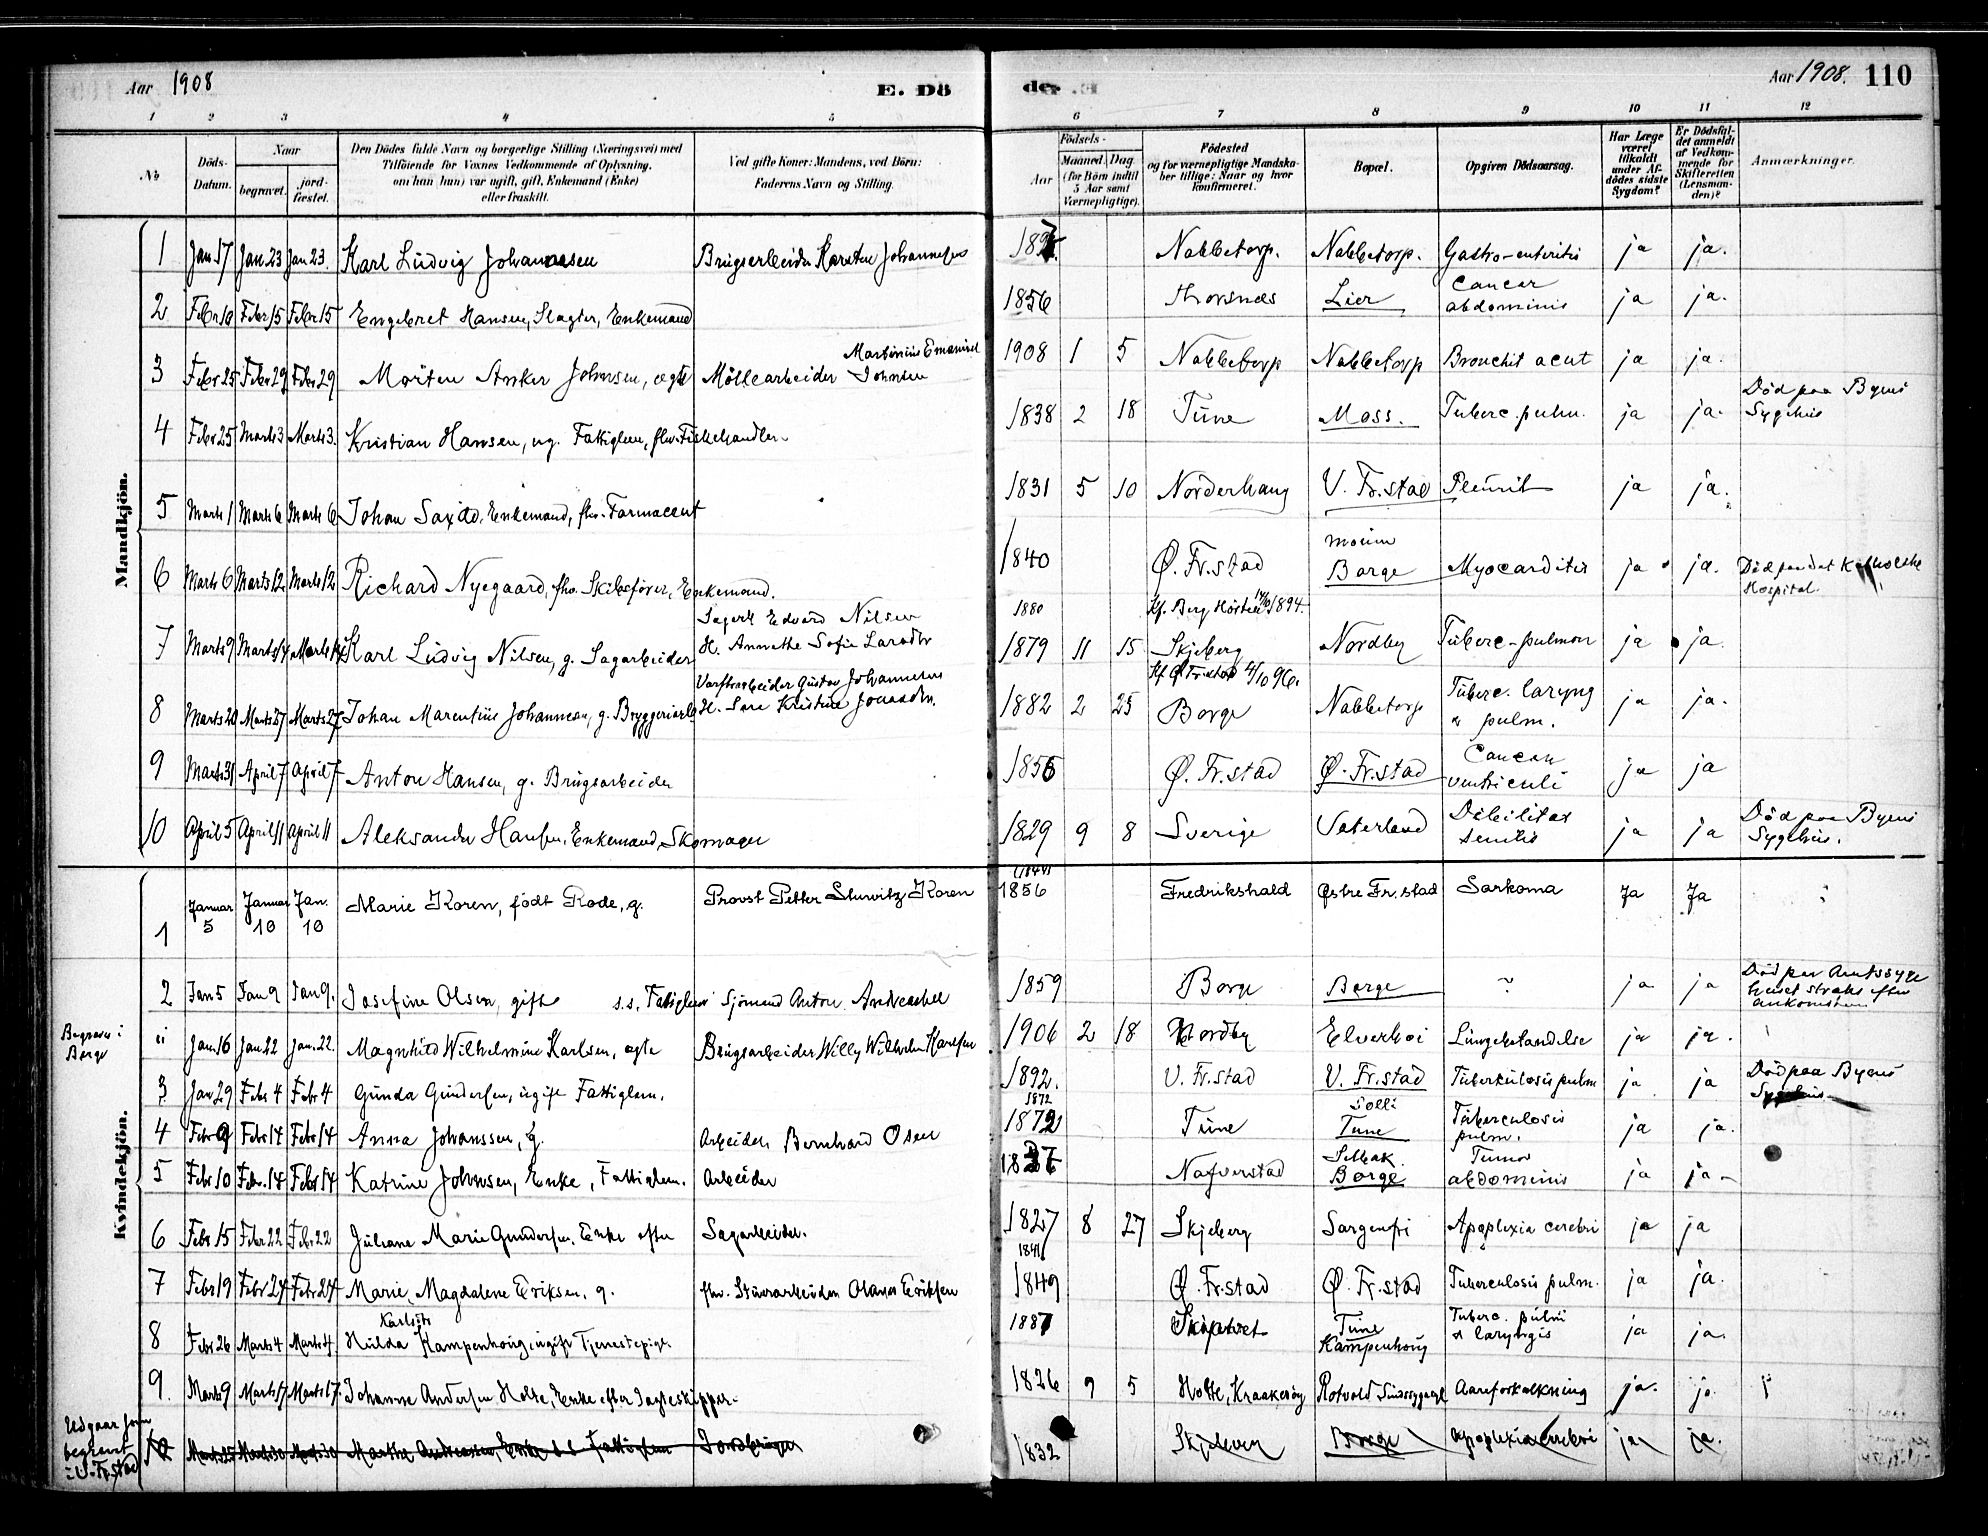 Aar 1908 E. Dö
1 2 3 4 5
No Döds-Datum. Naar begravet. jord-fæstet. Den Dödes fulde Navn og borgerlige Stilling (Næringsvei) med Tilföiende for Voxnes Vedkommende af Oplysning, om han (hun) var ugift, gift, Enkemand (Enke) eller fraskilt. Ved gifte Koner: Mandens, ved Börn: Faderens Navn og Stilling.
Mandkjön.
1 Jan 17 Jan 23 Jan 23 Karl Ludvig Johannesen Brugsarbeider Karsten Johannesen
2 Febr 10 Febr 15 Febr 15 Engebret Hansen, Slagter, Enkemand
3 Febr 25 Febr 29 Febr 29 Morten Anker Johnsen, ægte Möllearbeider Martinius Emanuel Johnsen
4 Febr 25 Marts 3 Marts 3. Kristian Hansen, ug. Fattiglem, fhv. Fiskehandler.
5 Marts 1 Marts 6 Marts 6 Johan Enkemand, fhv. Farmaceut
6 Marts 6 Marts 12 Marts 12 Richard Nyegaard, fhv. Skibsförer, Enkemand.
7 Marts 9 Marts 14 Marts 14 Karl Ludvig Nilsen, g. Sagarbeider Edvard Nilsen
H. Annethe Sofie
8 Marts 20 Marts 27 Marts 27 Johan Marentius Johannesen, g. Bryggeriarb. Værftsarbeider Gustav Johannesen
H. Kristine
9 Marts 31 April 7 April 7 Anton Hansen, g. Brugsarbeider
10 April 5 April 11 April 11 Aleksander Hansen, Enkemand, Skomager
Kvindekjön.
1 Januar 5 Januar 10 Jan. 10 Marie Koren, födt Rode, g. Provst Petter Koren
2 Jan 5 Jan 9 Jan 9. Josefine Olsen, gift s.s. Fattiglem Sjömand Anton
Begraven i Borge
ii Jan 16 Jan 22 Jan. 22. Magnhild Wilhelmine Karlsen, ægte Brugsarbeider Willy Wilhelm Karlsen
3 Jan 29 Febr 4 Febr 4 Gunda Gundersen, ugift Fattiglem.
4 Febr 9 Febr 14 Febr 14 Anna Johanssen, g. Arbeider Bernhard Osen
5 Febr 10 Febr. 14 Febr 14 Katrine Johnsen, Enke, Fattiglem. Arbeider
6 Febr 15 Febr 22 Febr 22 Juliane Marie Gundersen. Enke efter Sagarbeider.
7 Febr 19 Febr 24 Febr 24 Marie Magdalene Eriksen, g. fhv. Stuerarbeider Olaves Eriksen
8 Febr 26 Marts 4 Marts 4. Hulda Kampenhoug, ugift Tjenestepige.
9. Marts 9 Marts 17 Marts 17. Johanne Andersen Holte, Enke efter Jagteskipper.
Udgaar som begravet i V. Fr.stad
10 Marts 25 Marts 30 Marts 30 Marthe Andreasen, Enke s.s. Fattiglem Jordbruger
de. Aar 1908. 110
6 7 8 9 10 11 12
Födsels- Aar Maaned. Dag. (for Börn indtil 5 Aar samt Værnepligtige). Födested og for værnepligtige Mandskaber tillige: Naar og hvor konfirmeret. Bopæl. Opgiven Dödsaarsag. Har Læge været tilkaldt under Afdödes sidste Sygdom? Er Dödsfaldet anmeldt af Vedkommende for Skifteretten (Lensmanden)? Anmærkninger.
1897. Nabbetorp. Nabbetorp. Gastro-enteritis ja ja.
1856 Thorsnæs Lier Cancer abdominis ja ja.
1908 1 5 Nabbetorp Nabbetorp Bronchit acut ja ja.
1838 2 18 Tune Moss. Tuberc. pulm. ja ja. Död paa Byens Sygehus
1831 5 10 Norderhaug V. Fr.stad Pleurit ja ja.
1840 Ø. Fr.stad Borge Myocarditis ja ja. Död paa det Katholske Hospital.
1880 Kf. Berg Hösten 1894.
1879 11 15 Skjeberg Nordby Tuberc. pulmon ja ja
Kf. Ø Fr.stad 4/10 96.
1882 2 25 Borge Nabbetorp Tuberc. laryng & pulm. ja ja.
1856 Ø. Fr.stad Ø. Fr.stad Cancer ventriculi ja ja
1829 9 8 Sverige Vaterland Debilitas senilis ja ja Död paa Byens Sygehus.
1856 Fredrikshald Østre Fr.stad Sarkoma Ja Ja
1859 Borge Borge ? ja ja Död paa Amtssygehuset straks efter ankomsten
1906 2 18 Nordby Elverhoi Lungebetændelse ja ja.
1892. V. Fr.stad V. Fr.stad Tuberkulosis pulm ja ja Död paa Byens Sygehus
1872
1872 Tune Solli Tune Tuberculosis pulm. ja ja.
1837 Selbak. Borge Tumor abdominis ja ja
1827 8 27 Skjeberg Sorgenfri Apoplexia cerebri ja ja
1849 Ø. Fr.stad Ø. Fr.stad Tuberculosis pulm. ja ja.
1887 Skiptvet Tune Kampenhoug Tuberc. pulm & laryngis ja ja.
1826 9 5 Holte, Kragerø Rotvold Sindssygeasyl Aareforkalkning ja. ja
1832 Skjeberg Borge Apoplexia cerebri ja ja.